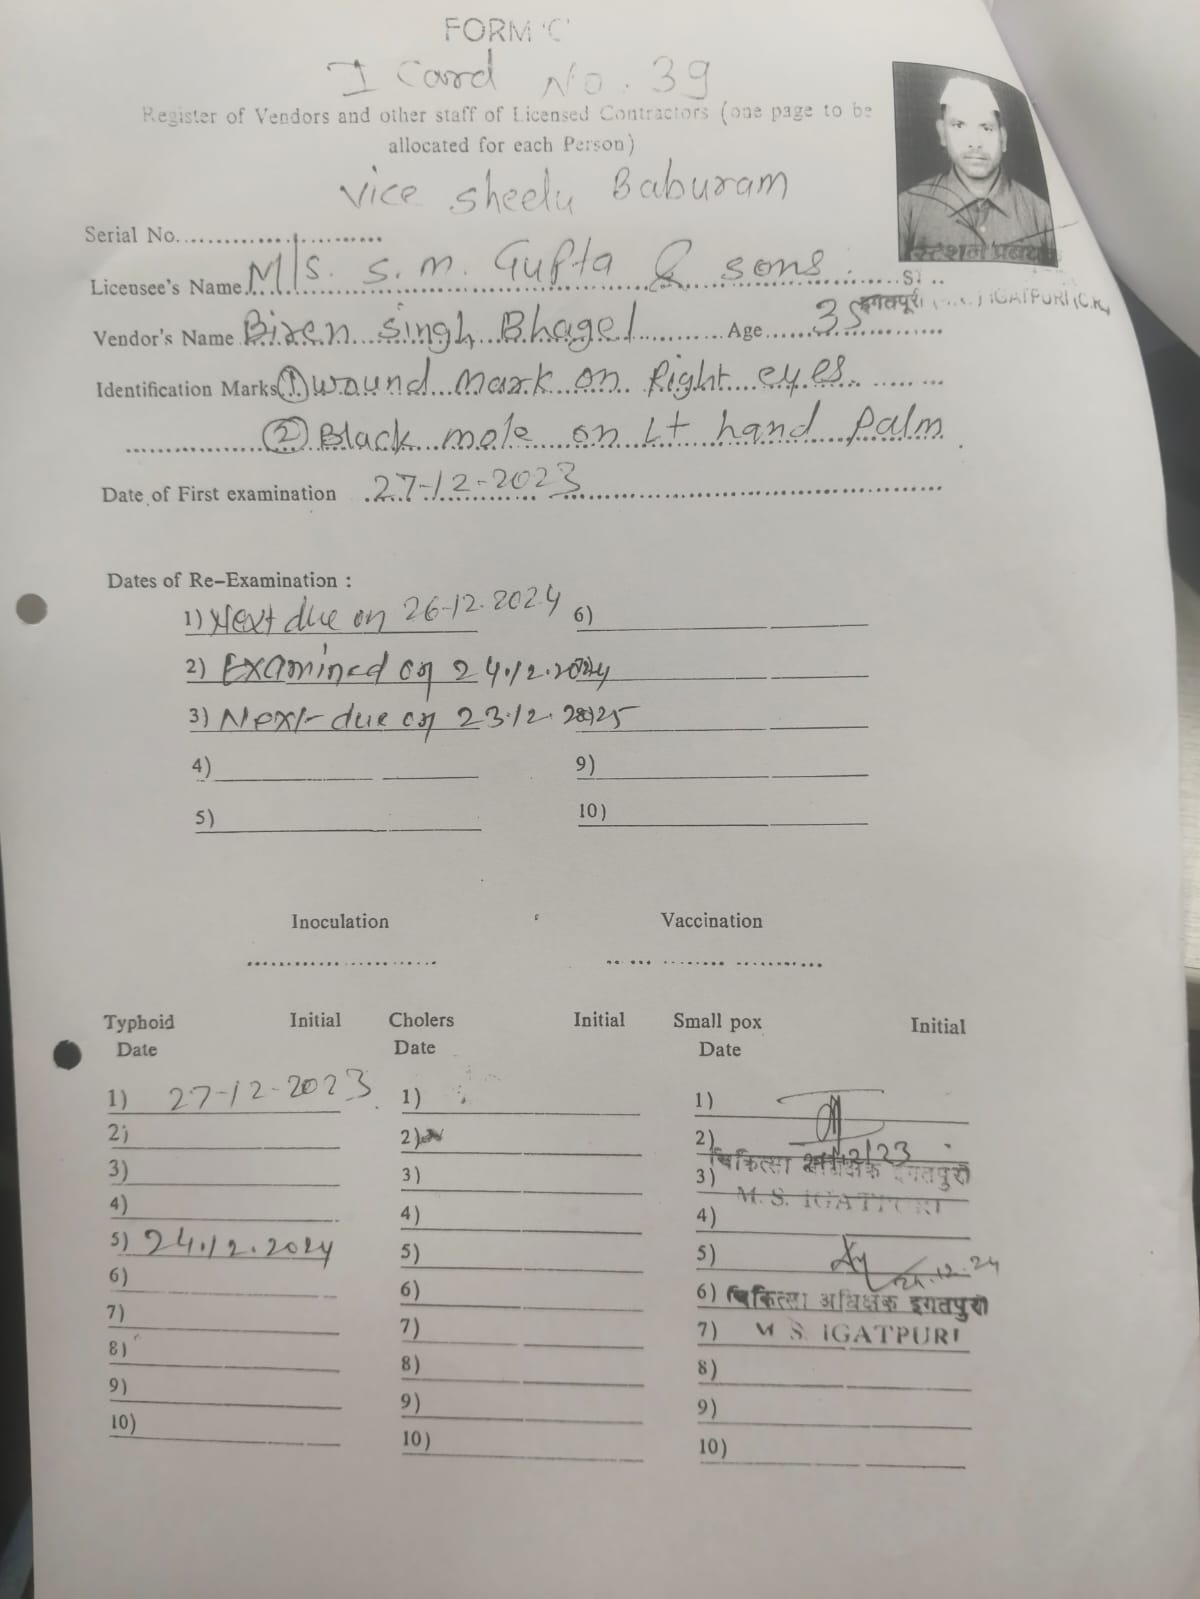 FORM 'C'
I Card No. 39
Register of Vendors and other staff of Licensed Contractors (one page to be
allocated for each Person)
vice sheelu Baburam
Serial No.
स्टेशन प्रबंधक
Licensee's Name M/s. S.M. Gupta & sons.
इगतपूरी IGATPURI (C.R.)
Vendor's Name Biren singh Bhagel Age 35
Identification Marks ① wound mark on Right eyes.
② Black mole on Lt hand Palm
Date of First examination 27-12-2023
Dates of Re-Examination :
1) Next due on 26-12-2024 6)
2) Examined on 24.12.2024
3) Next due on 23.12.2025
4) 9)
5) 10)
Inoculation Vaccination
Typhoid Initial Cholers Initial Small pox Initial
Date Date Date
1) 27-12-2023 1) 1)
2) 2) 2)
3) 3) 3) चिकित्सा अधिक्षक इगतपुरी
M. S. IGATPURI
4) 4) 4)
5) 24.12.2024 5) 5) 24.12.24
6) 6) 6) चिकित्सा अधिक्षक इगतपुरी
7) 7) 7) M S. IGATPURI
8) 8) 8)
9) 9) 9)
10) 10) 10)